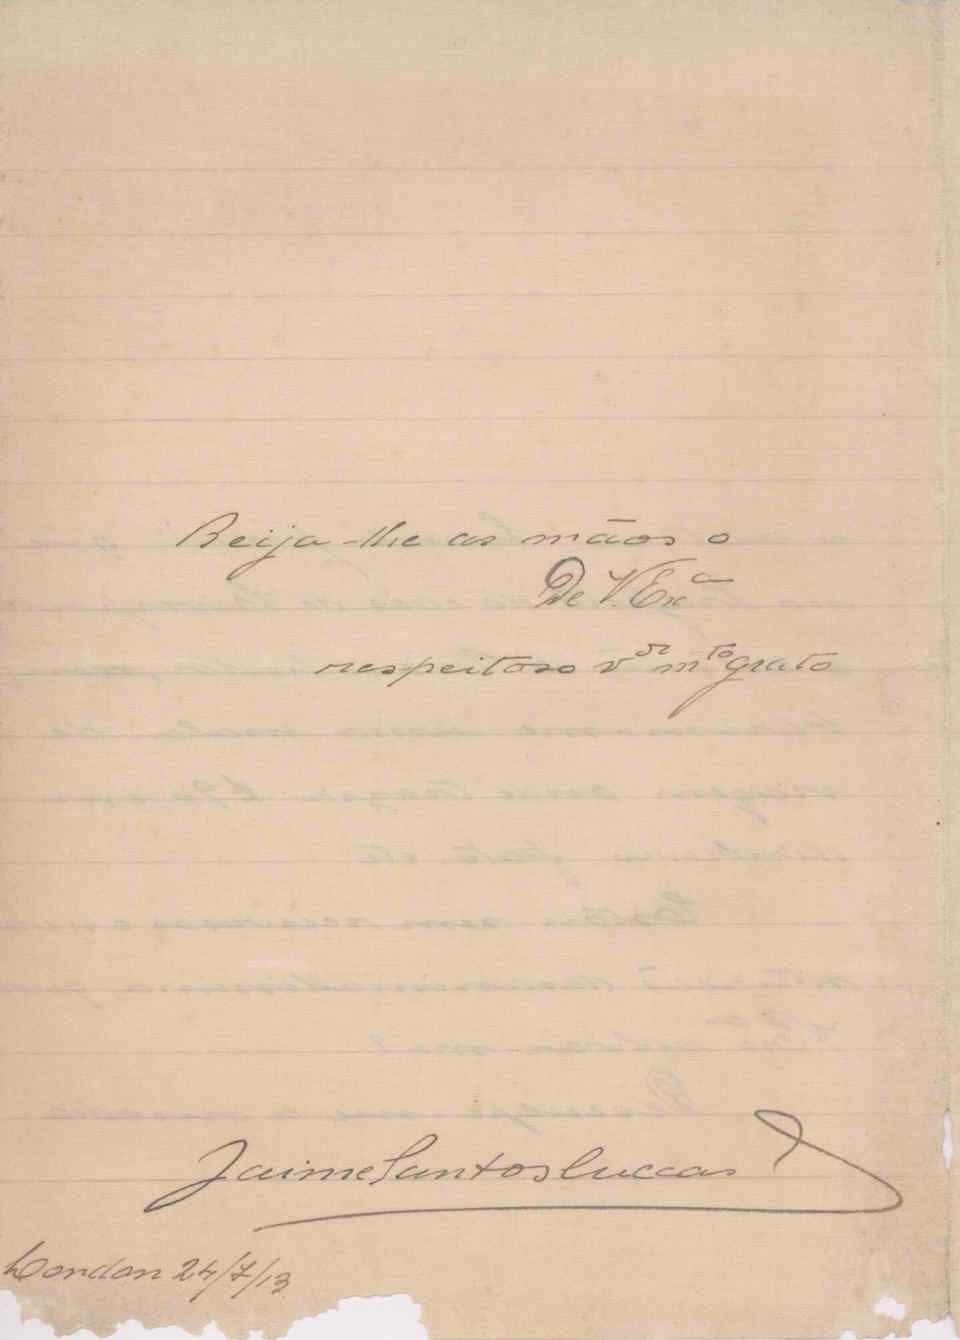 Beija-lhe as mãos o
De V. Exª
respeitoso vᵒʳ mᵗᵒ grato
Jaime Santos Luccas
London 24/7/13